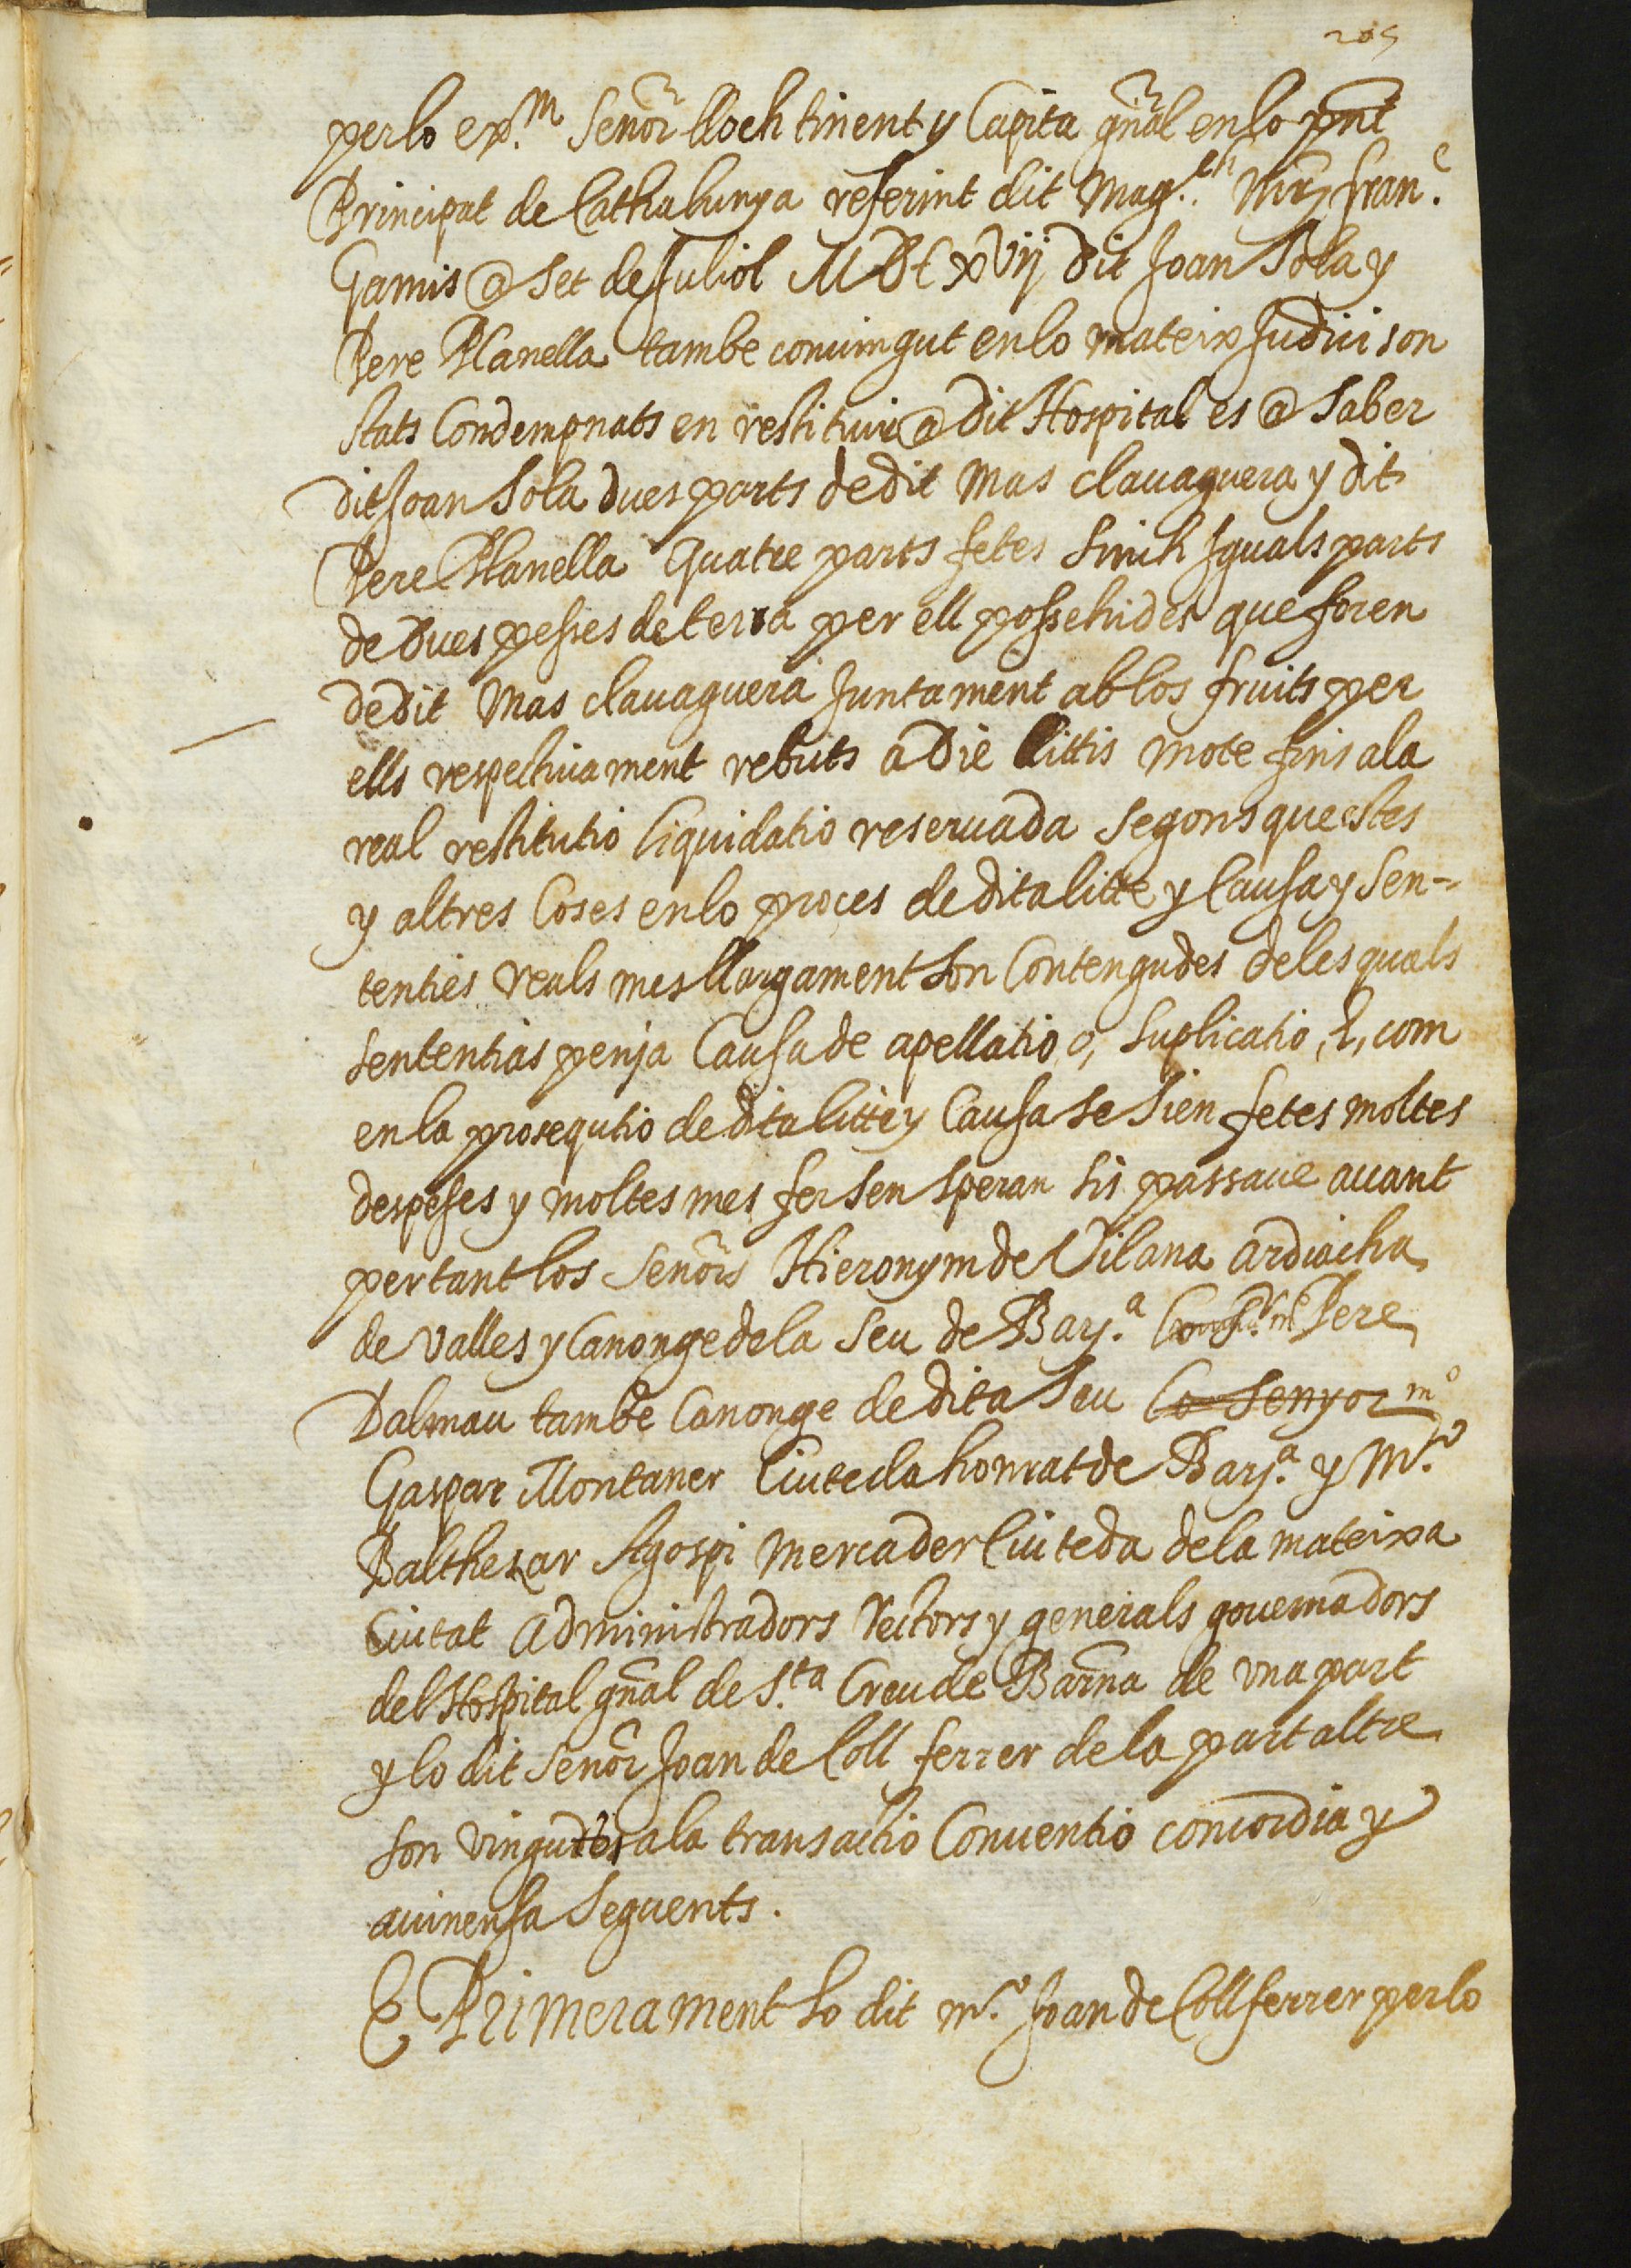 205
perlo ex.m Señor lloch tinent y Capita gñal enlo pnt
Principat de Cathalunya referint dit Mag.ch Mir fran.c
Gamis @ set de Juliol MDCxvij dit Joan Sola y
Pere Planella tambe convingut enlo mateix Judici son
stats Condempnats en restituir @ dit Hospital es @ saber
dit Joan Sola dues parts de dit Mas clavaguera y dit
Pere Planella quatre parts fetes sinch Iguals parts
de Dues pesses de terra per ell possehides que foren
de dit Mas clavaguera Juntament ab los fruits per
ells respectivament rebuts a Die littis mote fins ala
real restitutio liquidatio reservada segons questes
y altres Coses enlo proces de dita litte y Causa y Sen-
tenties reals mes llargament son Contengudes deles quals
sententias penja Causa de apellatio, o, suplicatio, E, com
enla prosequtio de dita litte y Causa se sien fetes moltes
despeses y moltes mes fer sen speran sis passave avant
pertant los señors Hieronym de Vilana ardiacha
de Valles y Canonge dela Seu de Barj.a Pere
Dalmau tambe Canonge de dita Seu Co Senyor m.o
Gaspar Montaner Ciuteda honrat de Barj.a y M.o
Balthezar Agospi Mercader Ciuteda dela mateixa
Ciutat Administradors Rectors y generals governadors
del Hospital gñal de S.ta Creu de Barña de una part
y lo dit señor Joan de Coll ferrer de la part altre
son vinguts ala transactio Conventio concordia y
avinensa seguents.
E Primerament lo dit m.o Joan de Collferrer perlo